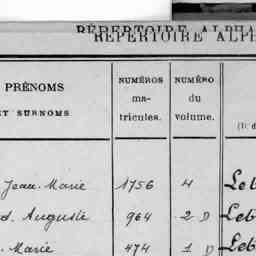 RÉPERTOIRE ALPHA
RÉPERTOIRE ALPH
PRÉNOMS
ET SURNOMS
NUMÉROS
ma-
tricules.
NUMÉRO
du
volume.
Jean-Marie 1756 4 Leb
d. Auguste 964 2 D Leb
. Marie 474 1 D Leb